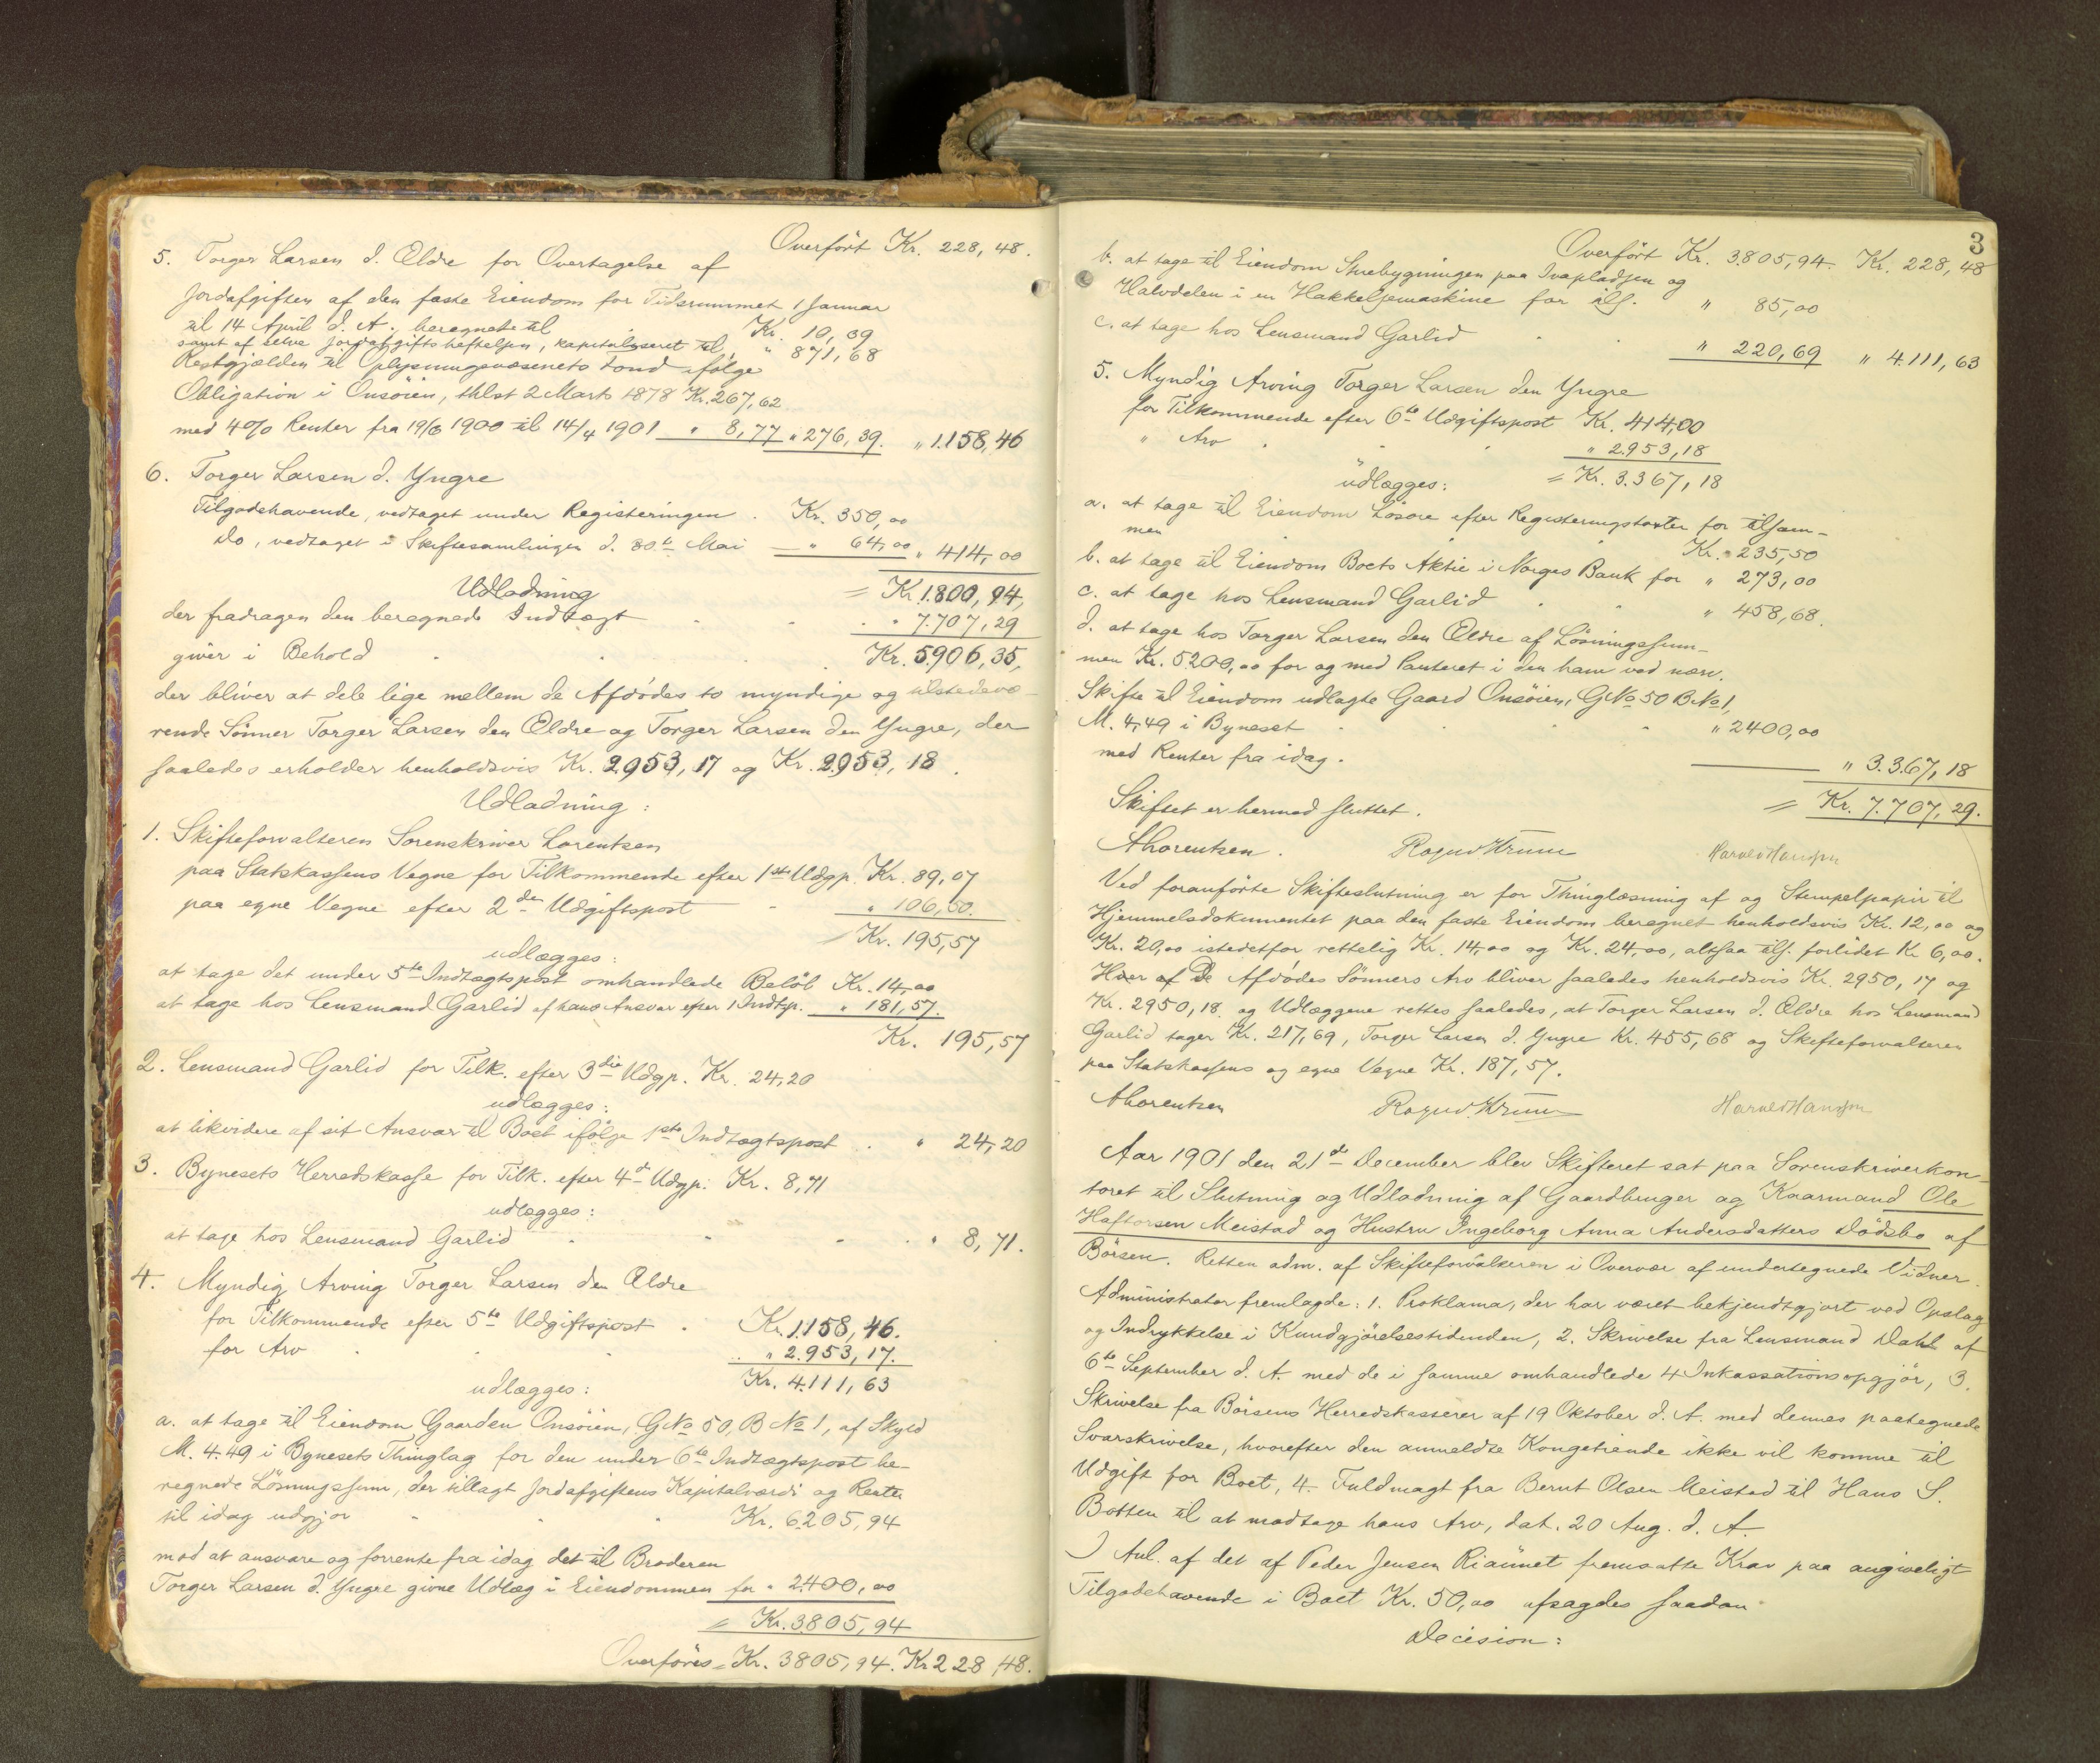 Overført Kr. 228,48.
5. Torger Larsen d. Ældre for Overtagelse af
Jordafgiften af den faste Eiendom for Tidsrummet 1 Januar
til 14 April d. A. beregnet til Kr. 10,39
samt af selve Jordafgiftsheftelsen, kapitaliseret til " 871,68
Restgjælden til Oplysningsvæsenets Fond ifølge
Obligation i Onsøien, thlst 2 Marts 1878 Kr. 267,62
med 4% Renter fra 19/6 1900 til 14/4 1901 " 8,77 " 276,39. " 1.158,46
6. Torger Larsen d. Yngre
Tilgodehavende, vedtaget under Registeringen . Kr. 350,00
Do, vedtaget i Skiftesamlingen d. 30te Mai " 64,00 " 414,00
Udladning = Kr. 1.800,94,
der fradragen den beregnede Indtægt . " 7.707,29
giver i Behold . . . Kr. 5.906,35,
der bliver at dele lige mellem de Afdødes to myndige og tilstedevæ-
rende Sønner Torger Larsen den Ældre og Torger Larsen den Yngre, der
saaledes erholder henholdsvis Kr. 2953,17 og Kr. 2953,18.
Udladning:
1. Skifteforvalteren Sorenskriver Lorentzen
paa Statskassens Vegne for Tilkommende efter 1ste Udgp. Kr. 89,07
paa egne Vegne efter 2den Udgiftspost - " 106,50.
= Kr. 195,57
udlægges:
at tage det under 5te Indtægtspost omhandlede Beløb Kr. 14,00
at tage hos Lensmand Garlid af hans Ansvar efter 1 Indtp. " 181,57.
Kr. 195,57
2. Lensmand Garlid for Tilk. efter 3die Udgp. Kr. 24,20
udlægges:
at likvidere af sit Ansvar til Boet ifølge 1ste Indtægtspost . " 24,20
3. Bynesets Herredskasse for Tilk. efter 4de Udgp. Kr. 8,71
udlægges:
at tage hos Lensmand Garlid . " 8,71.
4. Myndig Arving Torger Larsen den Ældre
for Tilkommende efter 5te Udgiftspost . Kr. 1.158,46.
for Arv . . " 2.953,17.
Kr. 4.111,63
udlægges:
a. at tage til Eiendom Gaarden Onsøien, GNo 50, BNo 1, af Skyld
M. 4.49 i Bynesets Thinglag for den under 6te Indtægtspost be-
regnede Løsningssum, der tillagt Jordafgiftens Kapitalværdi og Renter
til idag udgjør . . Kr. 6.205,94
mod at ansvare og forrente fra idag det til Broderen
Torger Larsen d. Yngre givne Udlæg i Eiendommen for " 2400,00
= Kr. 3.805,94
Overføres = Kr. 3805,94. Kr. 228,48.
3
Overført Kr. 3.805,94. Kr. 228,48
b. at tage til Eiendom Stuebygningen paa Svapladsen og
Halvdelen i en Hakkelsemaskine for tils. " 85,00
c. at tage hos Lensmand Garlid . . " 220,69 " 4.111,63
5. Myndig Arving Torger Larsen den Yngre
for Tilkommende efter 6te Udgiftspost Kr. 414,00
" Arv . . " 2.953,18
= Kr. 3.367,18
udlægges:
a. at tage til Eiendom Løsøre efter Registeringstaxter for tilsam-
men . . Kr. 235,50
b. at tage til Eiendom Boets Aktie i Norges Bank for " 273,00
c. at tage hos Lensmand Garlid . " 458,68.
d. at tage hos Torger Larsen den Ældre af Løsningssum-
men Kr. 5.200,00 for og med Panteret i den ham ved nærv.
Skifte til Eiendom udlagte Gaard Onsøien, GNo 50 BNo 1,
M. 4,49 i Byneset . . " 2400,00
med Renter fra idag. " 3.367,18
Skiftet er hermed sluttet. = Kr. 7.707,29.
ALorentzen. Ragnv Krum Harald Hansen
Ved foranførte Skifteslutning er for Thinglæsning af og Stempelpapir til
Hjemmelsdokumentet paa den faste Eiendom beregnet henholdsvis Kr. 12,00 og
Kr. 20,00 istedetfor rettelig Kr. 14,00 og Kr. 24,00, altsaa tils. forlidet Kr 6,00.
Hver af De Afdødes Sønners Arv bliver saaledes henholdsvis Kr. 2950,17 og
Kr. 2950,18. og Udlæggene rettes saaledes, at Torger Larsen d. Ældre hos Lensmand
Garlid tager Kr. 217,69, Torger Larsen d. Yngre Kr. 455,68 og Skifteforvalteren
paa Statskassens og egne Vegne Kr. 187,57.
ALorentzen Ragnv. Krum Harald Hansen
Aar 1901 den 21de December blev Skifteret sat paa Sorenskriverkon-
toret til Slutning og Udladning af Gaardbruger og Kaarmand Ole
Haftorsen Meistad og Hustru Ingeborg Anna Andersdatters Dødsbo af
Børsen. Retten adm. af Skifteforvalteren i Overvær af undertegnede Vidner.
Administrator fremlagde: 1. Proklama, der har været bekjendtgjort ved Opslag
og Indrykkelse i Kundgjørelsestidenden, 2. Skrivelse fra Lensmand Dahl af
6te September d. A. med de i samme omhandlede 4 Inkassationsopgjør, 3.
Skrivelse fra Børsens Herredskasserer af 19 Oktober d. A. med dennes paategnede
Svarskrivelse, hvorefter den anmeldte Kongetiende ikke vil komme til
Udgift for Boet, 4. Fuldmagt fra Bernt Olsen Meistad til Hans S.
Botten til at modtage hans Arv, dat. 20 Aug. d. A.
I Anl. af det af Peder Jensen Riaunet fremsatte Krav paa angiveligt
Tilgodehavende i Boet Kr. 50,00 afsagdes saadan
Decision: